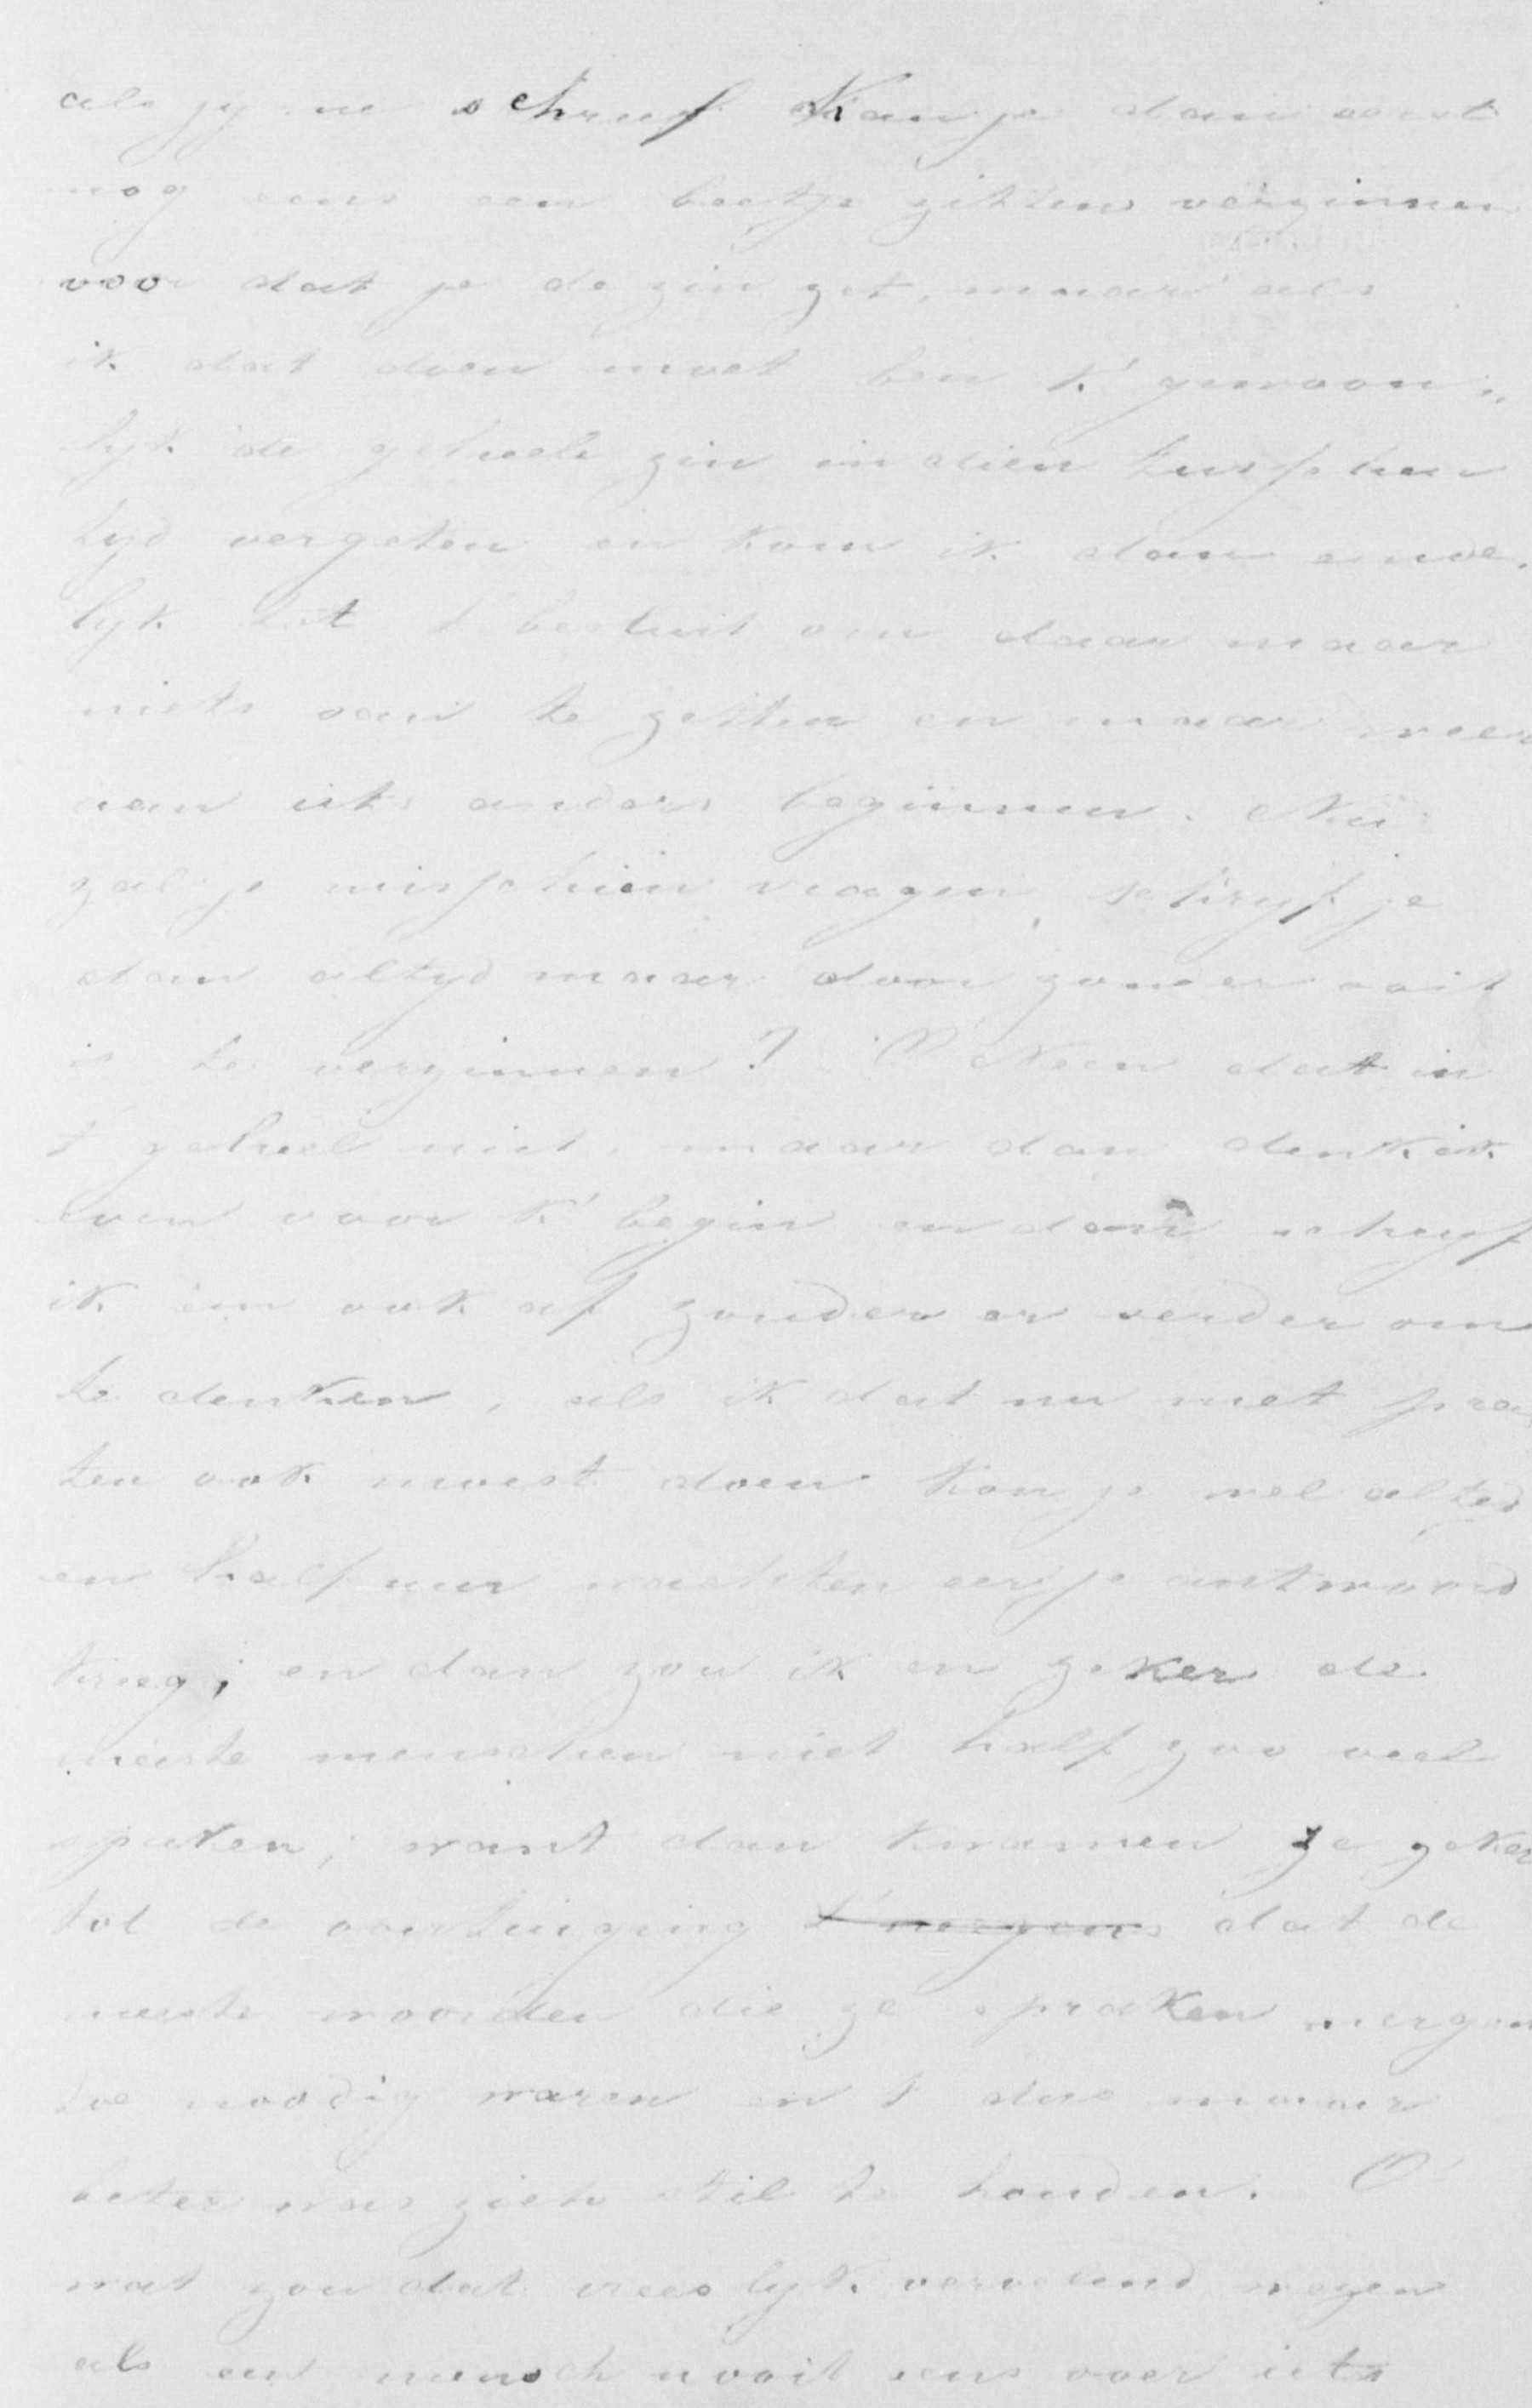 als jy me schreef Kan je dan eerst
nog eens een beetje zitten verzinnen
voor dat je de zin zet, maar als
ik dat doen moet ben k' gewoon„
lyk de geheele zin in dien tusschen
tyd vergeten en kom ik dan einde„
lyk tot t' besluit om daar maar
niets van te zetten en maar weer
aan iets anders beginnen. Nu
zal je misschien vragen, schryf je
dan altyd maar door zonder ooit
is te verzinnen? O Neen dat in
t' geheel niet, maar dan denk ik
even voor k' begin en dan schryf
ik em ook af zonder er verder om
te denken, als ik dat nu met pra
ten ook moest doen kon je wel altyd
en half uur wachten eer je antwoord
kreeg; en dan zou ik en zeker de
meeste menschen niet half zoo veel
spreken; want dan kwamen ze zeker
tot de overtuiging t' nergens dat de
meeste woorden die ze spraken nergens
toe noodig waren en t' dus maar
beter was zich stil te houden. O
wat zou dat vreeslyk vervelend wezen
als een mensch nooit eens over iets